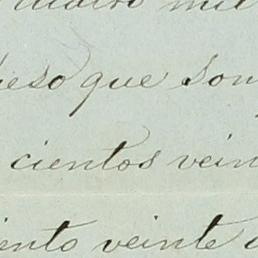 mil
peso que son
cientos vein
iento veinte